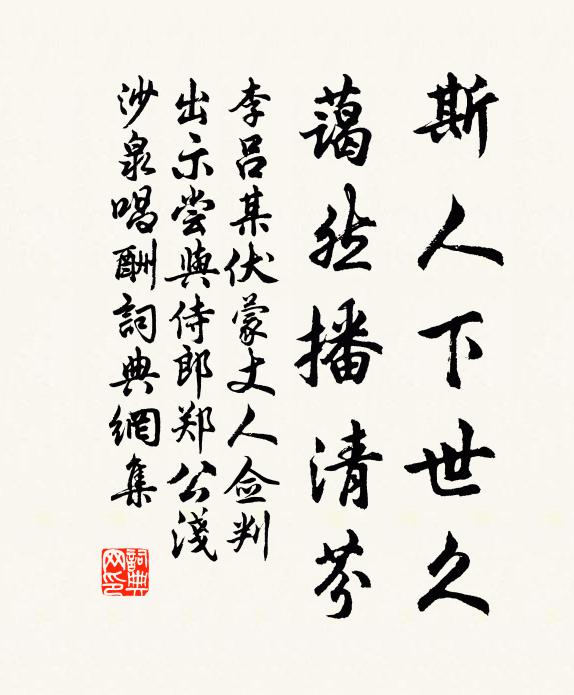 斯人下世久
藹然播清芬
李呂某伏蒙丈人佥判
出示尝與侍郎郑公淺
沙泉唱酬詞典網集
詞典網印